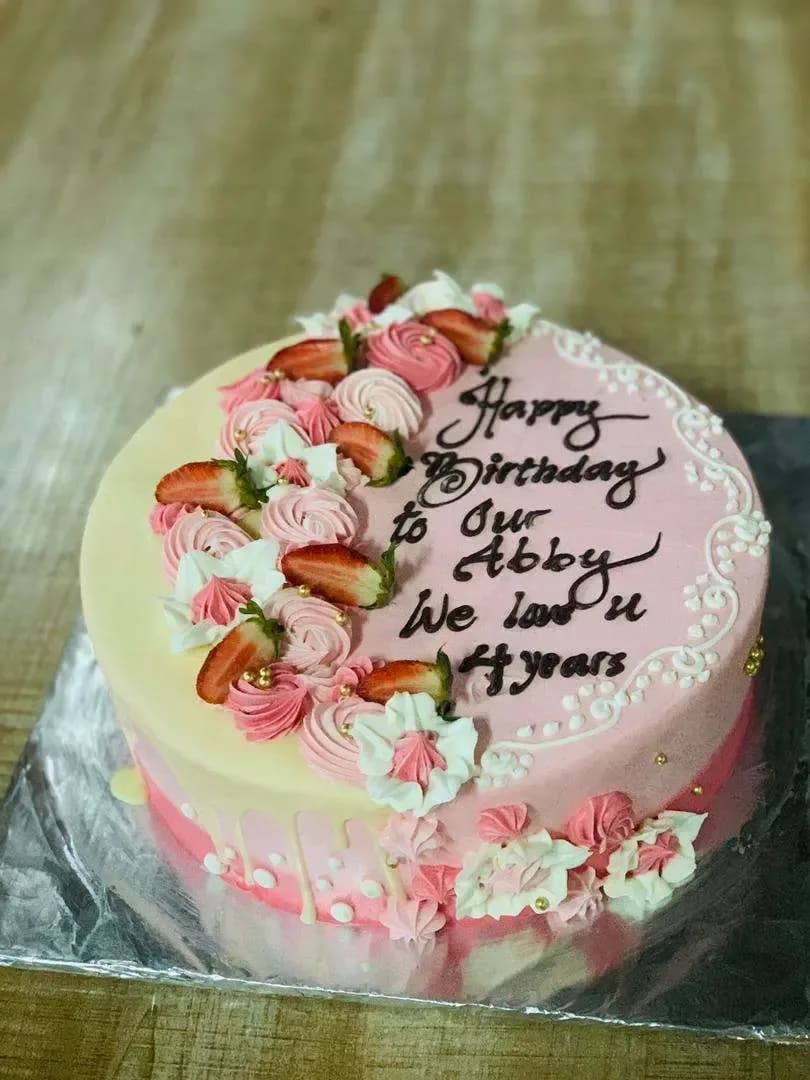 Happy
Birthday
to Our
Abby
We love u
4 years